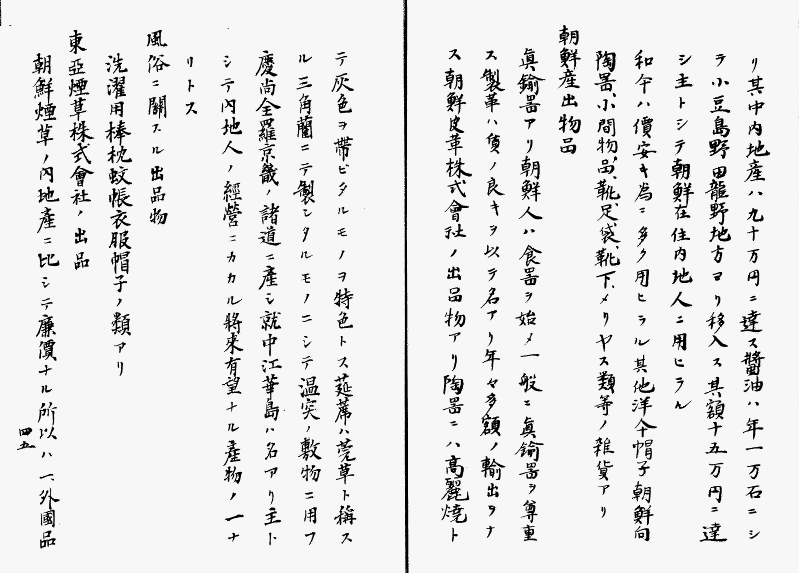 リ其中內地產ハ九十万円ニ達ス醬油ハ年一万石ニシ
テ小豆島野田龍野地方ヨリ移入ス其額十五万円ニ達
シ主トシテ朝鮮在住內地人ニ用ヒラル
和傘ハ價安キ為ニ多ク用ヒラル其他洋傘帽子朝鮮向
陶器、小間物品、靴、足袋、靴下、メリヤス類等ノ雜貨アリ
朝鮮產出物品
眞鍮器アリ朝鮮人ハ食器ヲ始メ一般ニ眞鍮器ヲ尊重
ス製革ハ質ノ良キヲ以テ名アリ年々多額ノ輸出ヲナ
ス朝鮮皮革株式會社ノ出品物アリ陶器ニハ高麗燒ト
テ灰色ヲ帶ビタルモノヲ特色トス莚蓆ハ莞草ト稱ス
ル三角藺ニテ製シタルモノニシテ溫突ノ敷物ニ用フ
慶尚全羅京畿ノ諸道ニ產シ就中江華島ハ名アリ主ト
シテ內地人ノ經營ニカカル將來有望ナル產物ノ一ナ
リトス
風俗ニ關スル出品物
洗濯用棒枕蚊帳衣服帽子ノ類アリ
東亞煙草株式會社ノ出品
朝鮮煙草ノ內地產ニ比シテ廉價ナル所以ハ一、外國品
四五